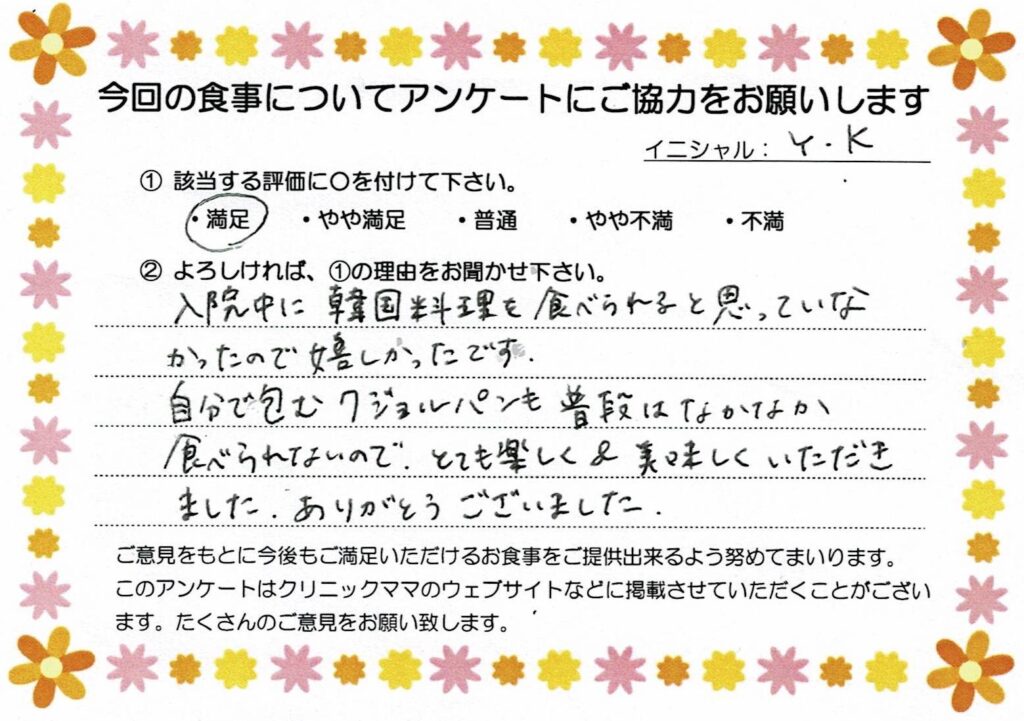 今回の食事についてアンケートにご協力をお願いします
イニシャル： Y.K
① 該当する評価に〇を付けて下さい。
・満足 ・やや満足 ・普通 ・やや不満 ・不満
② よろしければ、①の理由をお聞かせ下さい。
入院中に韓国料理を食べられると思っていな
かったので嬉しかったです.
自分で包むクジョルパンも普段はなかなか
食べられないので. とても楽しく&美味しくいただき
ました. ありがとうございました.
ご意見をもとに今後もご満足いただけるお食事をご提供出来るよう努めてまいります。
このアンケートはクリニックママのウェブサイトなどに掲載させていただくことがござい
ます。たくさんのご意見をお願い致します。